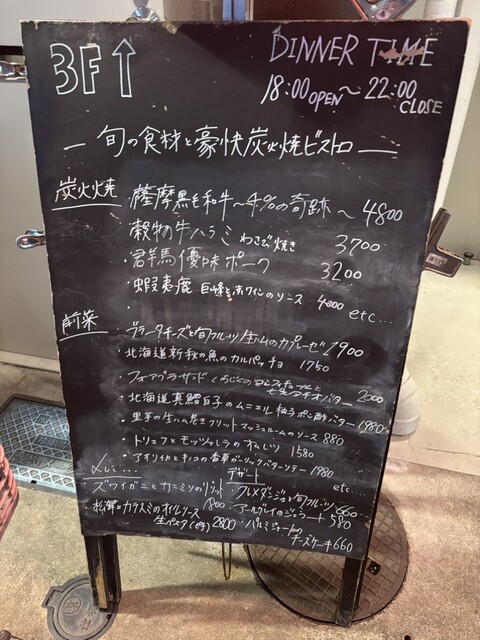 3F↑
DINNER TIME
18:00 OPEN ~ 22:00 CLOSE
— 旬の食材と豪快炭火焼ビストロ —
炭火焼
薩摩黒毛和牛～4%の奇跡～ 4800
穀物牛ハラミ わさび焼き 3700
・群馬優味ポーク 3200
・蝦夷鹿 巨峰と赤ワインのソース 4000 etc...
前菜
・ブラータチーズと旬フルーツ 生ハムのカプレーゼ 1900
・北海道新秋の魚のカルパッチョ 1750
・フォアグラサンド いちじくの
ピスタチオバター 2000
・北海道真鱈白子のムニエル 柚子ポン酢バター 1980
・里芋の生ハム巻きフリット マッシュルームのソース 880
・トリュフとモッツァレラのオムレツ 1580
・アオリイカとキノコの香草ガーリックバターソテー 1980
etc...
〆に...
ズワイガニとカニミソのリゾット
松茸とカラスミのオイルソース 1800
生パスタ 2800
デザート
・ブレメダンジュと旬フルーツ 660
・アールグレイのジェラート 580
・パルミジャーノの
チーズケーキ 660